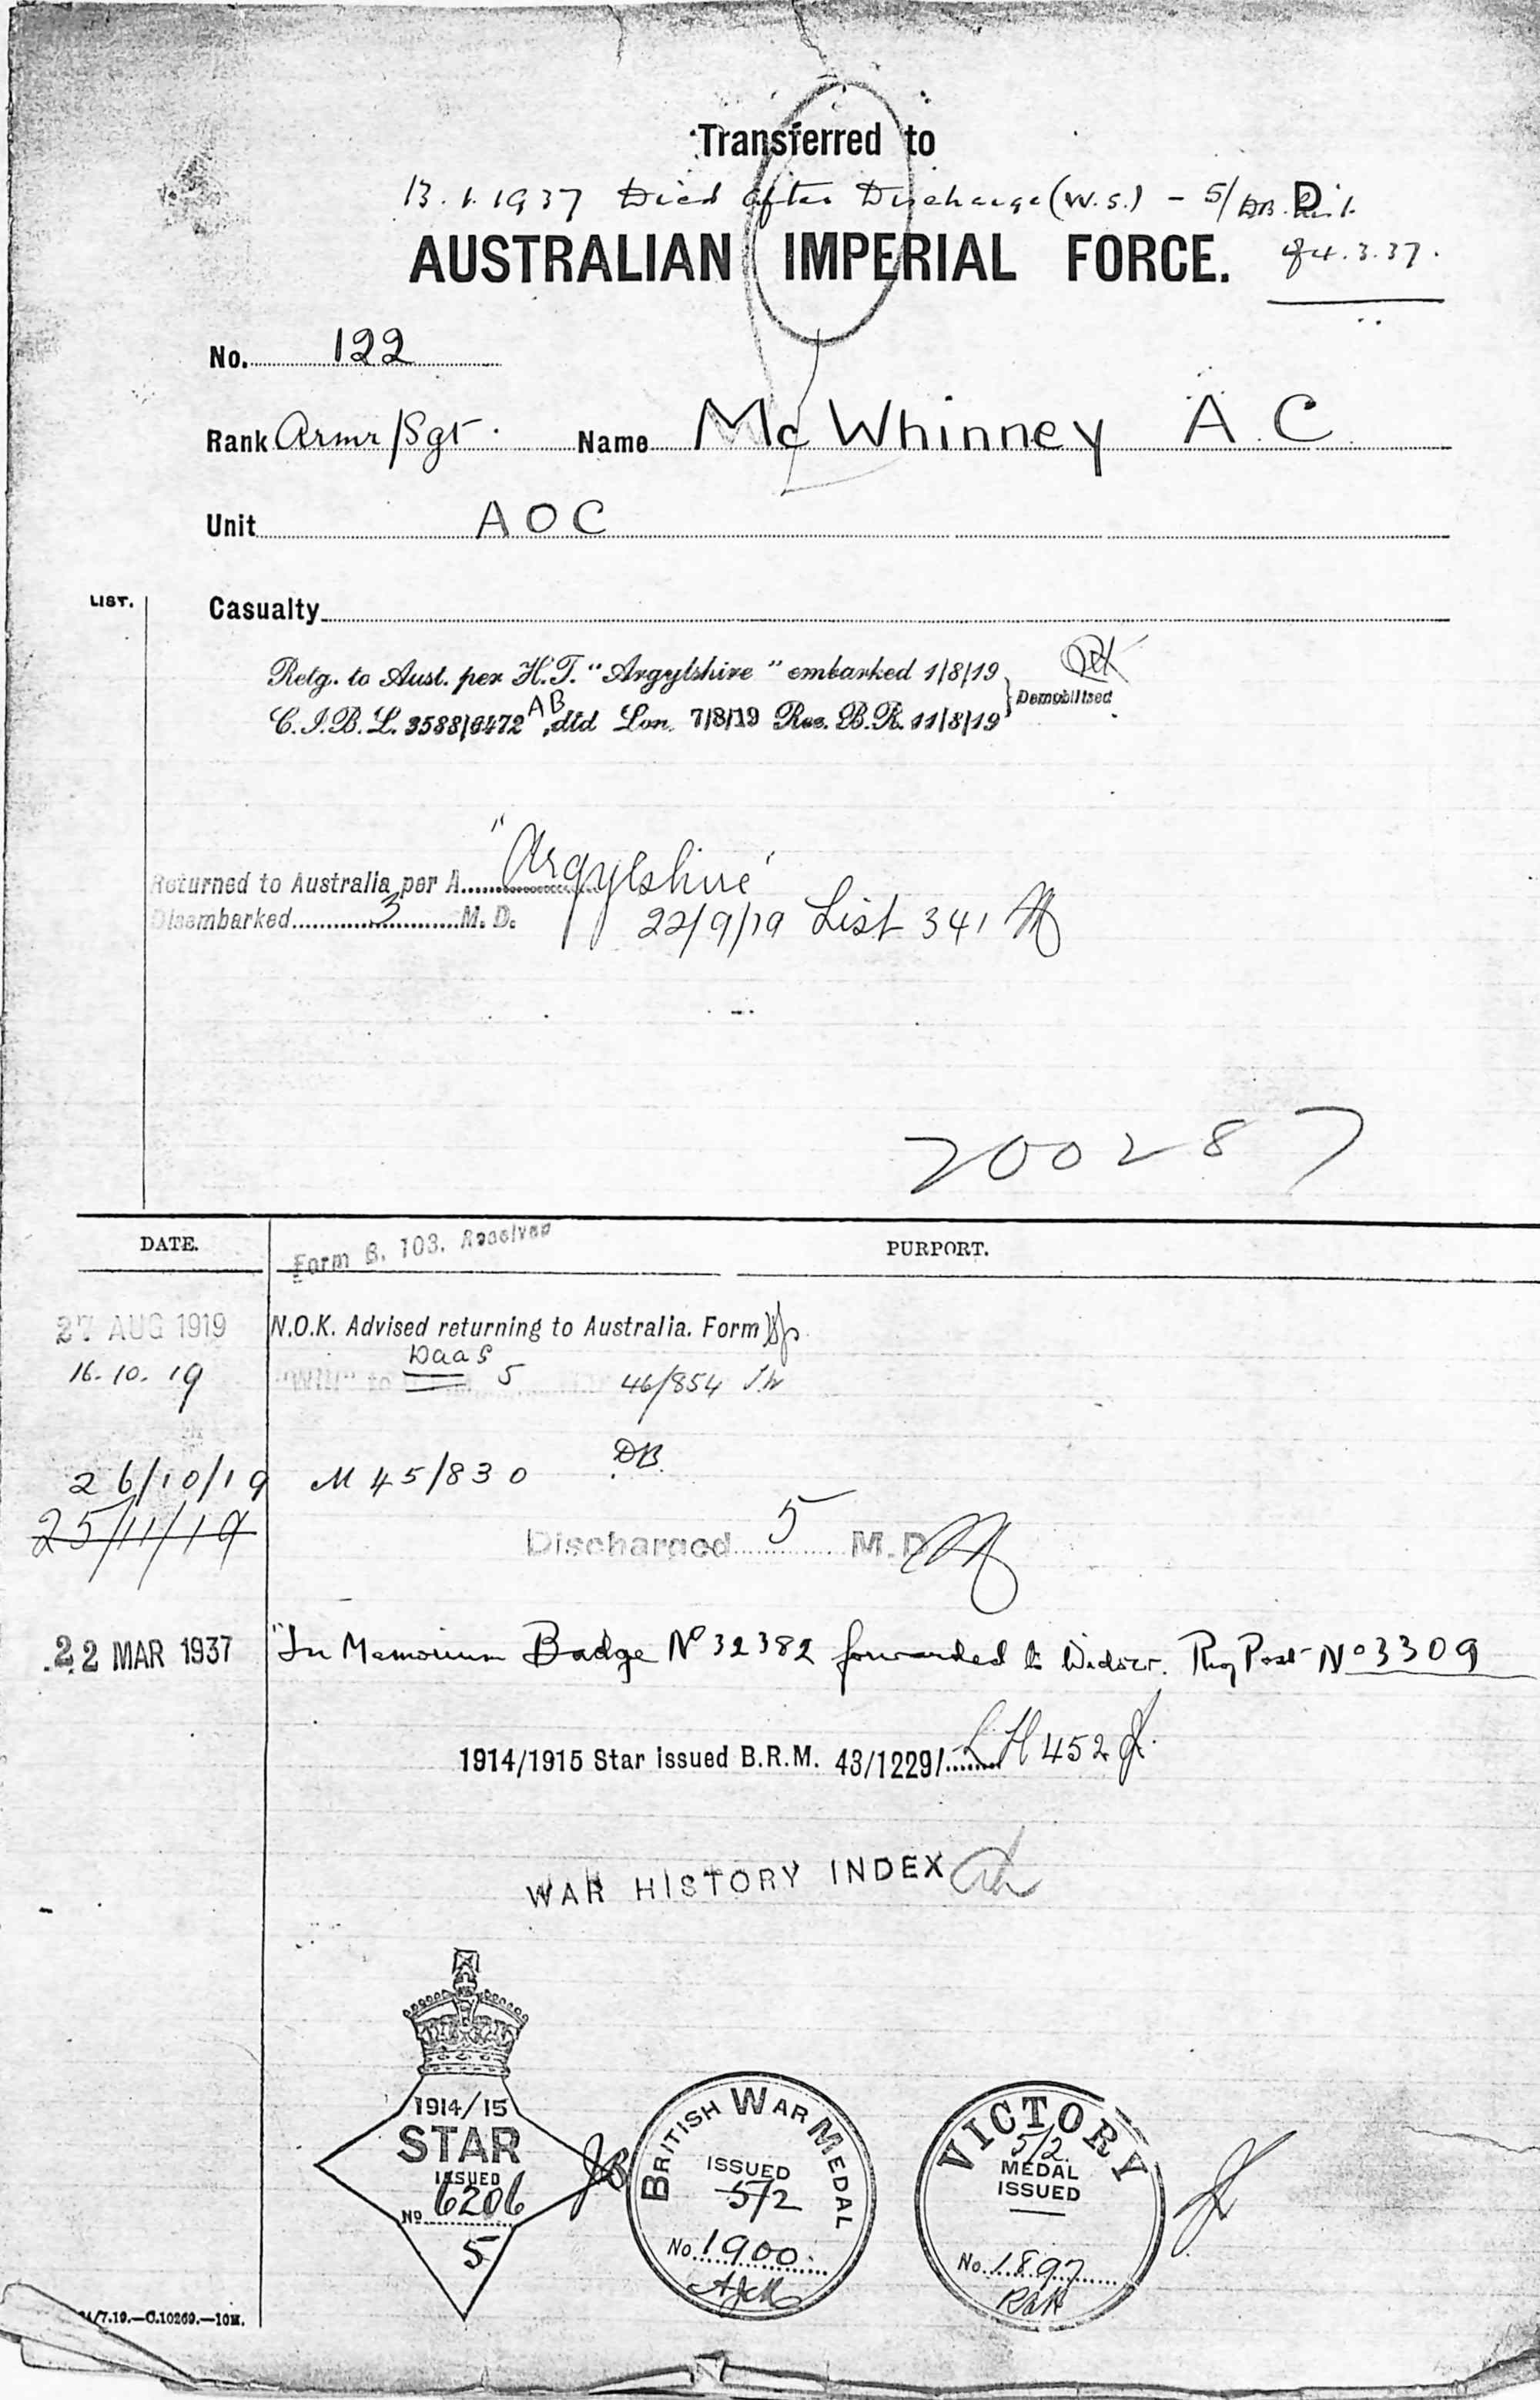 Transferred to
13.1.1937 Died after Discharge (W.S.) - 5/DB. D
AUSTRALIAN IMPERIAL FORCE.
4.3.37.
No. 122
Rank Armr/Sgt. Name McWhinney A.C
Unit AOC
LIST.
Casualty
Retg. to Aust. per H.T. "Argylshire" embarked 1/8/19
Demobilised
C.I.B.L. 3588/6472 AB, dtd Lon. 7/8/19 Rec. B.R. 11/8/19
Returned to Australia per A "Argylshire"
Disembarked 3 M.D. 22/9/19 List 341
200287
DATE. Form B. 103. Received PURPORT.
27 AUG 1919 N.O.K. Advised returning to Australia. Form
16.10.19 "Will" to DAAG 5 46/854
26/10/19 M 45/830 DB.
25/11/19 Discharged 5 M.D.
22 MAR 1937 "In Memorium Badge No 32382 forwarded to Widow. Reg Post No 3309
1914/1915 Star issued B.R.M. 43/1229/ LH 452
WAR HISTORY INDEX
1914/15
STAR
ISSUED
No 6206
5
BRITISH WAR MEDAL
ISSUED
5/2
No. 1900
VICTORY
5/2.
MEDAL
ISSUED
No. 1897
/7.19.—C.10269.—10M.